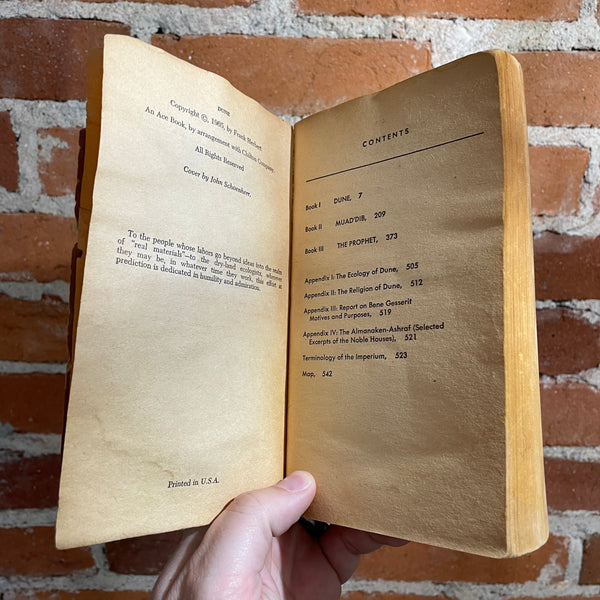 DUNE
Copyright ©, 1965, by Frank Herbert
An Ace Book, by arrangement with Chilton Company.
All Rights Reserved
Cover by John Schoenherr.
To the people whose labors go beyond ideas into the realm
of "real materials"—to the dry-land ecologists, wherever
they may be, in whatever time they work, this effort at
prediction is dedicated in humility and admiration.
Printed in U.S.A.
CONTENTS
Book I DUNE, 7
Book II MUAD'DIB, 209
Book III THE PROPHET, 373
Appendix I: The Ecology of Dune, 505
Appendix II: The Religion of Dune, 512
Appendix III: Report on Bene Gesserit
Motives and Purposes, 519
Appendix IV: The Almanaken-Ashraf (Selected
Excerpts of the Noble Houses), 521
Terminology of the Imperium, 523
Map, 542